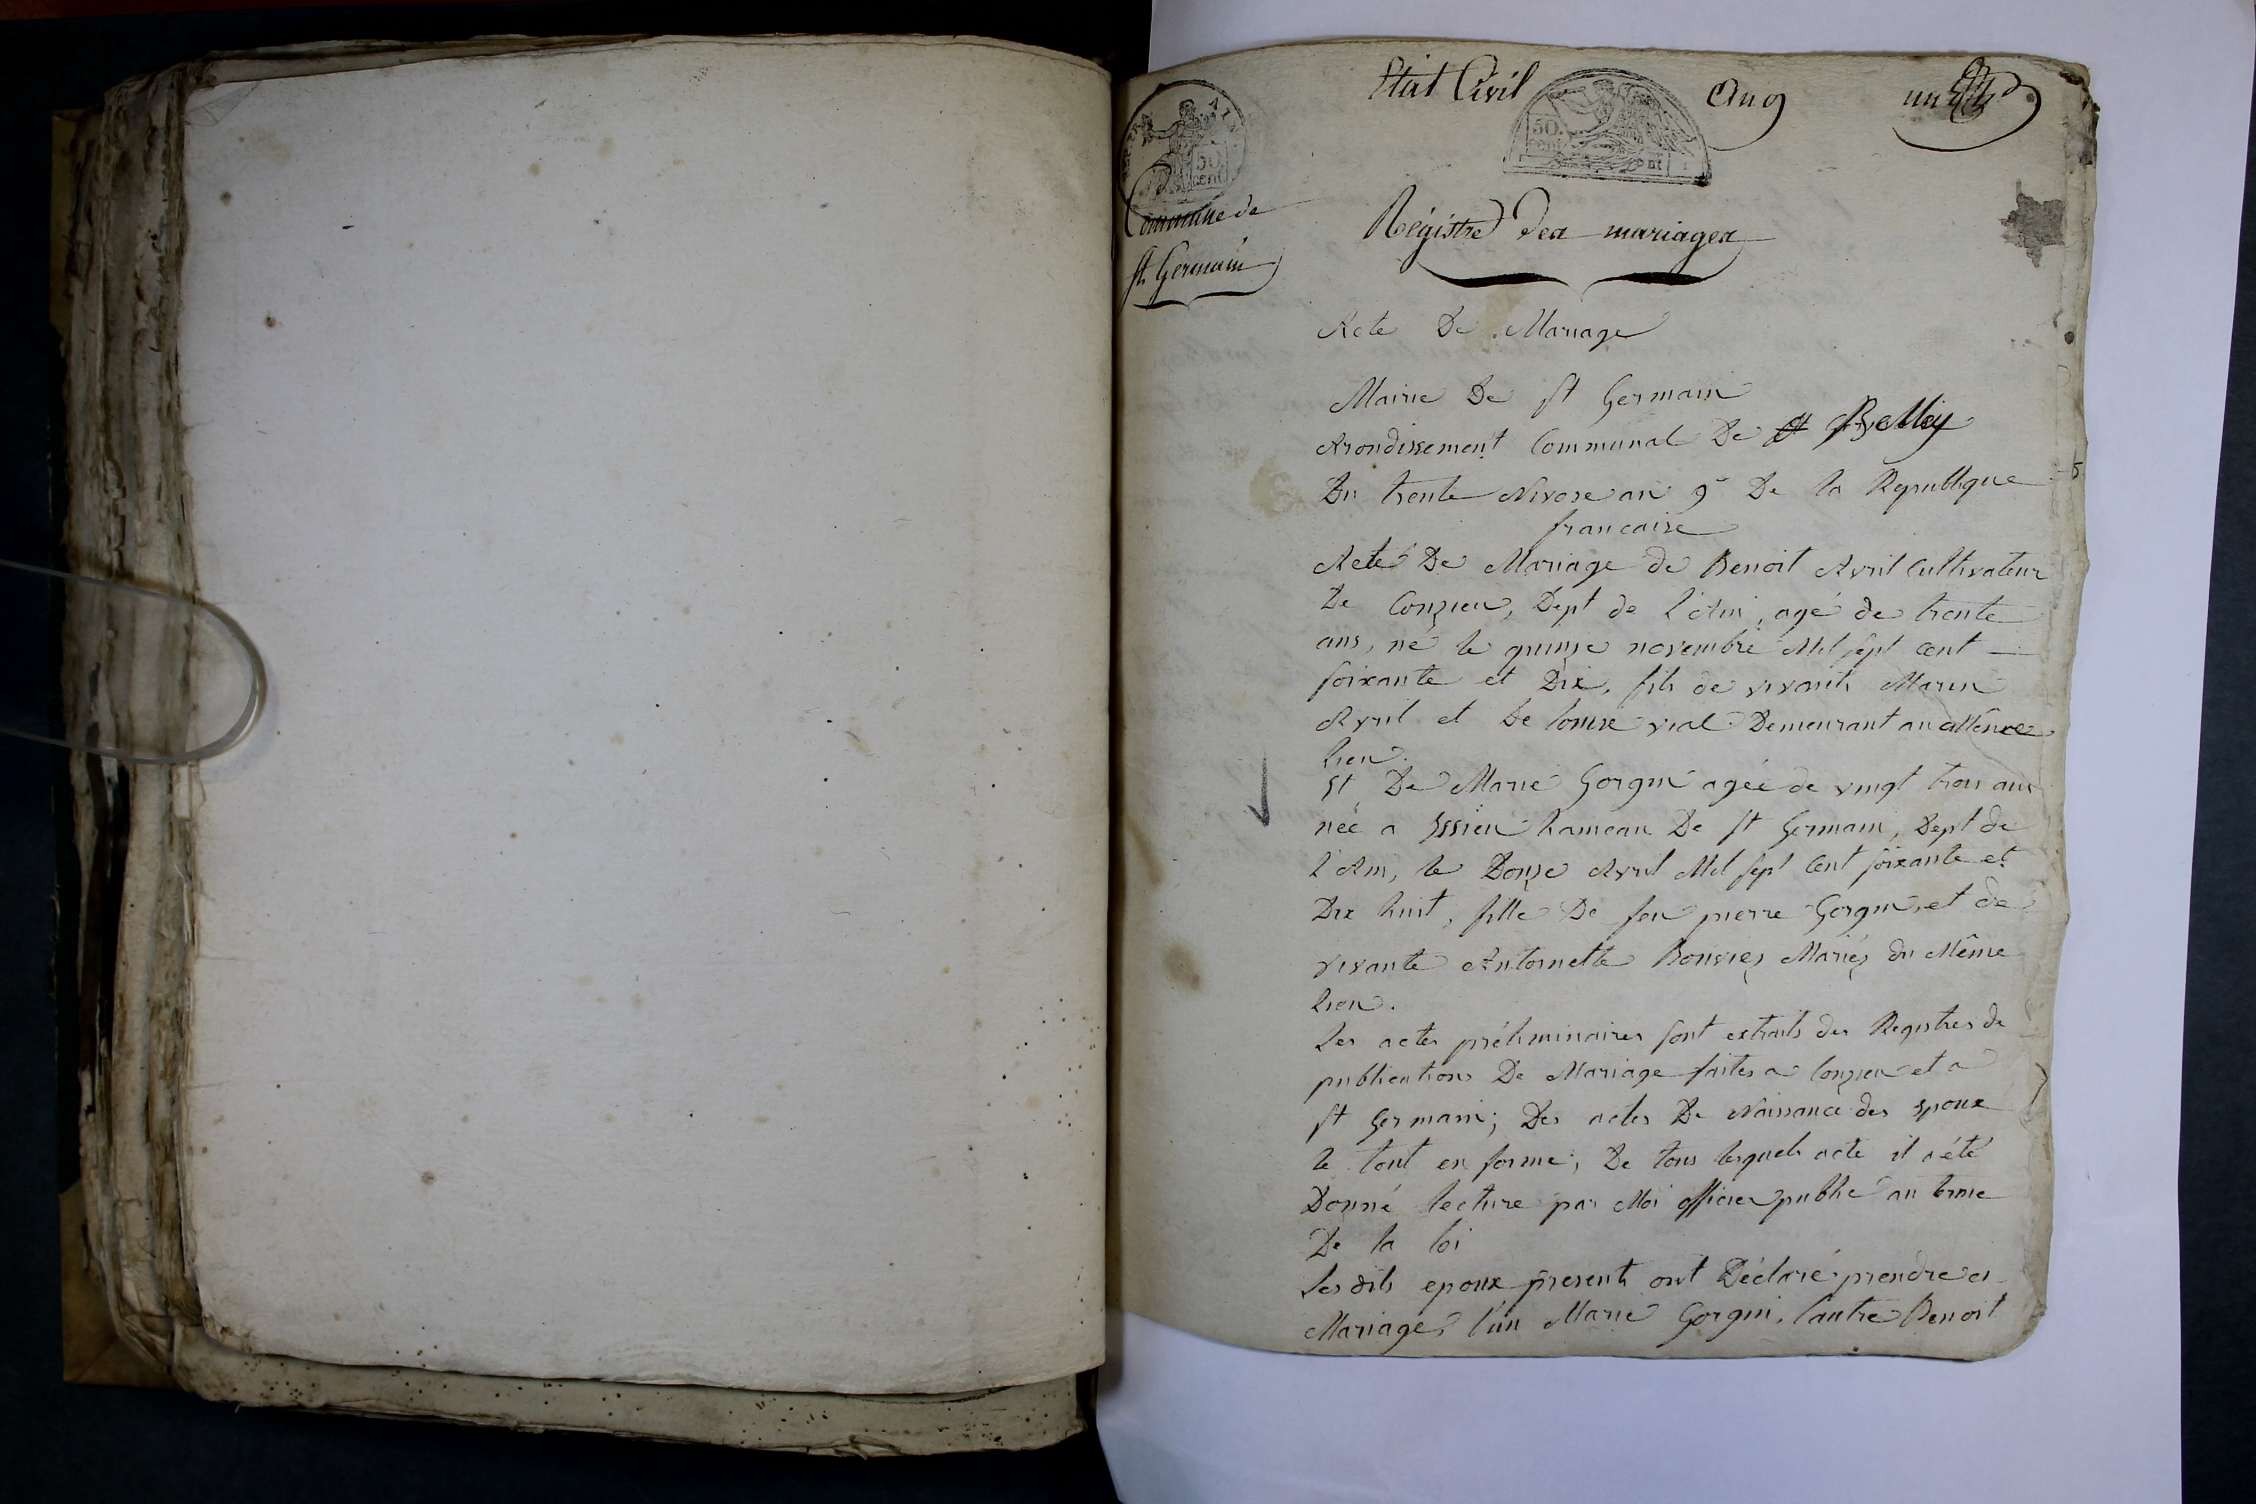 Etat Civil
An 9
un
50.
cent
50
cent
Commune de
St. Germain
Régistre des mariages
Acte De Mariage
Mairie De St Germain
Arondissement Communal De Belley
Du trente Nivose an 9e De la Republique
francaise
Acte De Mariage de Benoit Avril Cultivateur
De Conzieu, Dept de l'Ain, agé de trente
ans, né le quinze novembre Mil sept cent
soixante et Dix, fils de vivants Marin
Avril et de louise vial Demeurant au Même
lieu.
Et De Marie Gorgui agée de vingt trois ans
née a Essieu hameau De St Germain, Dept de
l'Ain, le Douze Avril Mil sept Cent soixante et
Dix huit, fille De feu pierre Gorgui, et de
vivante Antoinette Bonvies Mariés du Même
lieu.
Les actes préliminaires sont extraits des Registres de
publications De Mariage faites a Conzieu et a
St Germain; Des actes De Naissance des epoux
le tout en forme; De tous lesquels acte il a été
Donné lecture par Moi officier public au terme
De la loi
Les dits epoux presents ont Déclaré prendre en
Mariage, l'un Marie Gorgui, l'autre Benoit